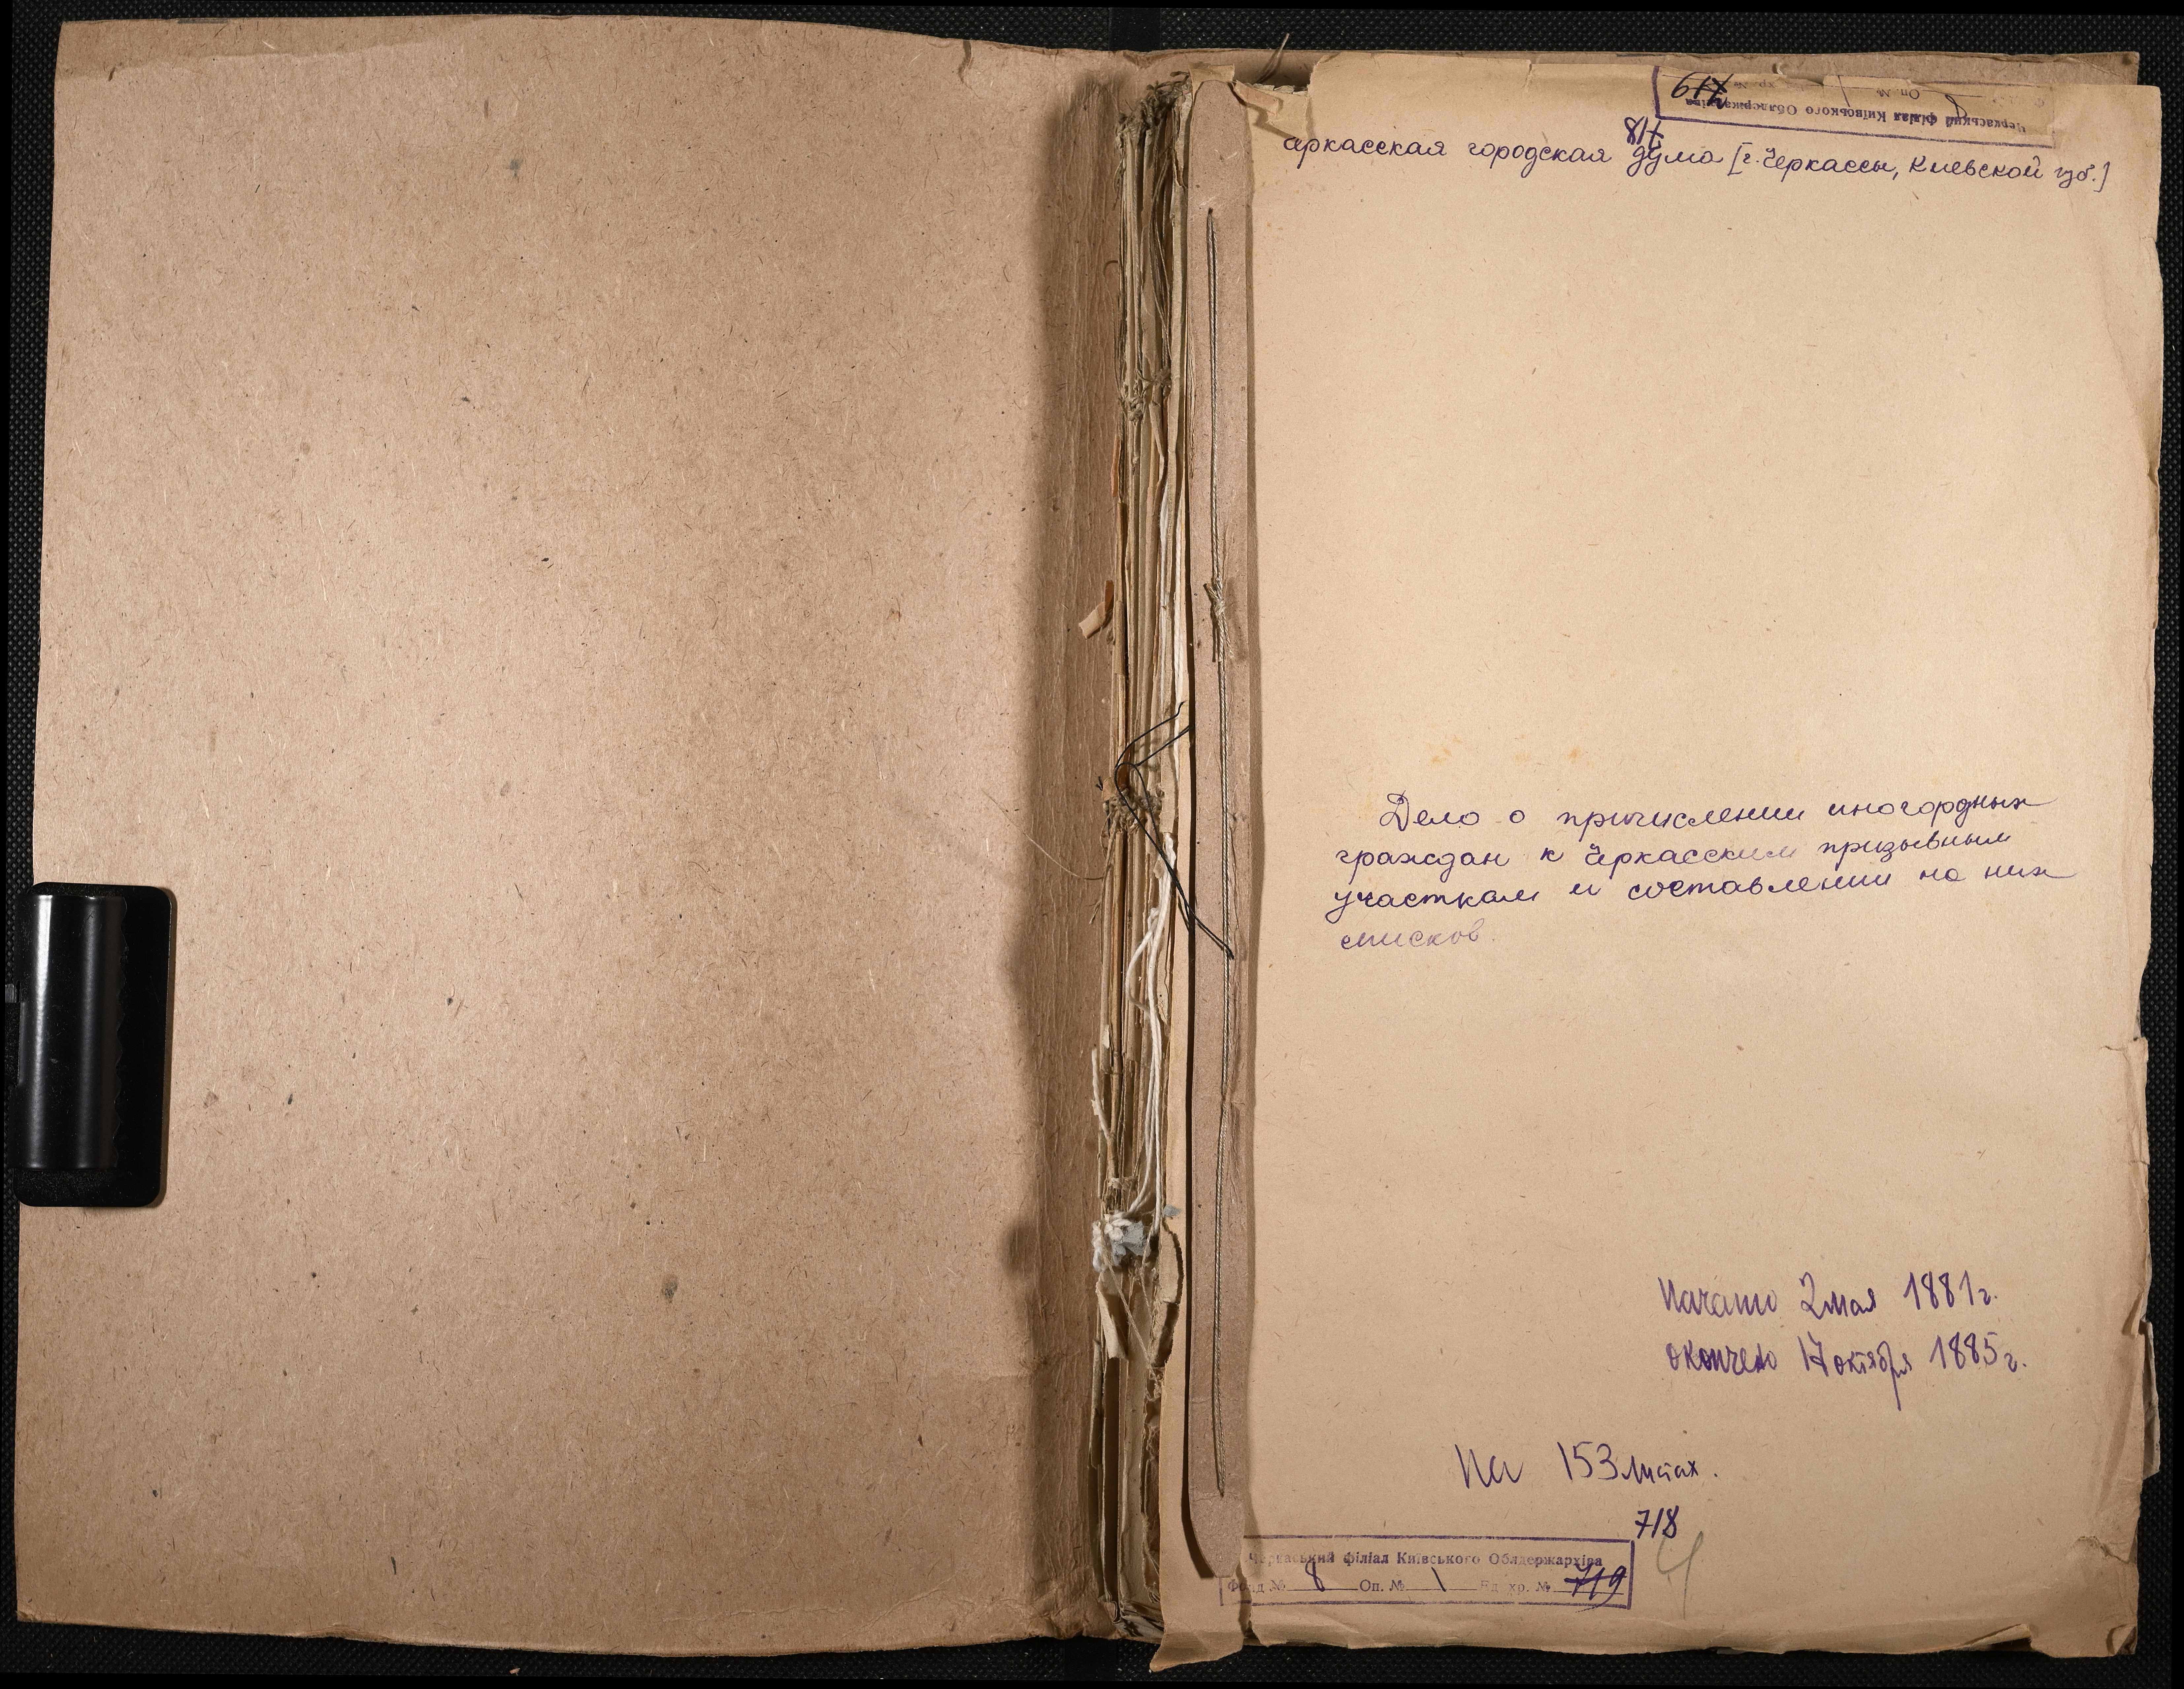 Черкаський філіал Київського Облдержархіва
Оп. №
719
718
еркасская городская дума [г. Черкассы, Киевской губ.]
Дело о причислении иногордных
граждан к Черкасским призывным
участкам и составлении на них
списков.
Начато 2 мая 1881 г.
окончено 17 октября 1885 г.
На 153 листах.
718
4
Черкаський філіал Київського Облдержархіва
Фонд № 8 Оп. № 1 Ед. хр. № 719